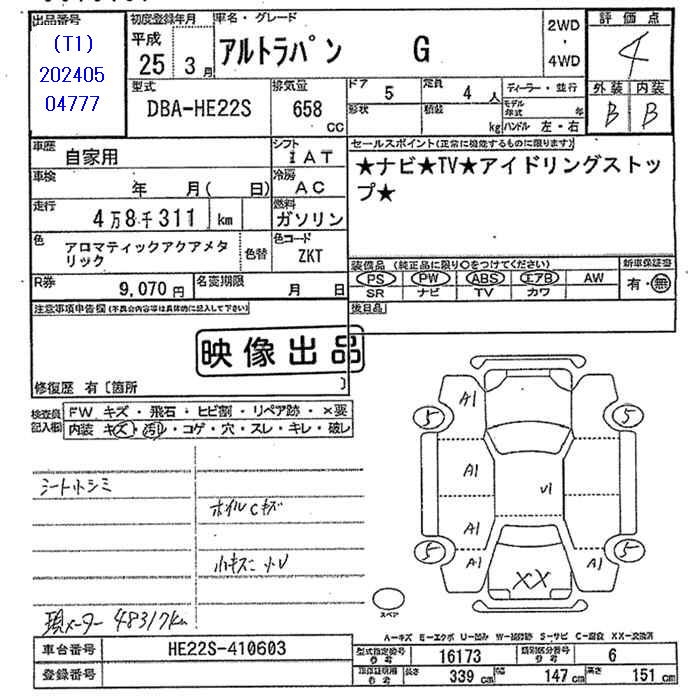 出品番号
(T1)
202405
04777
初度登録年月
平成
25 3月
車名・グレード
アルトラパン G
2WD
・
4WD
評価点
4
外装 内装
B B
型式
DBA-HE22S
排気量
658
CC
ドア
5
定員
4人
形状
積載
kg
ディーラー・並行
モデル年式 年
ハンドル 左・右
車歴
自家用
シフト
IAT
車検
年 月( 日)
冷房
AC
走行
4万8千311 km
燃料
ガソリン
色
アロマティックアクアメタリック
色替
色コード
ZKT
R券
9,070円
名変期限
月 日
セールスポイント(正常に機能するものに限ります)
★ナビ★TV★アイドリングストッ
プ★
装備品(純正品に限り○をつけてください)
PS PW ABS エアB AW
SR ナビ TV カワ
新車保証書
有・無
後日品
注意事項申告欄(不具合内容等は具体的に記入して下さい)
映像出品
修復歴 有〔箇所 〕
検査員記入欄
FW キズ・飛石・ヒビ割・リペア跡・×要
内装 キズ・汚れ・コゲ・穴・スレ・キレ・破レ
シート小シミ
ホイルCキズ
小キズ 小U
現メーター 48317km
A1
A1
A1
A1
A1
U1
XX
5
5
5
5
スペア
A-キズ E-エクボ U-凹み W-補修跡 S-サビ C-腐食 XX-交換済
車台番号
HE22S-410603
登録番号
型式指定番号
参考
16173
類別区分番号
参考
6
車庫証明用
参考
長さ 339cm
幅 147cm
高さ 151cm